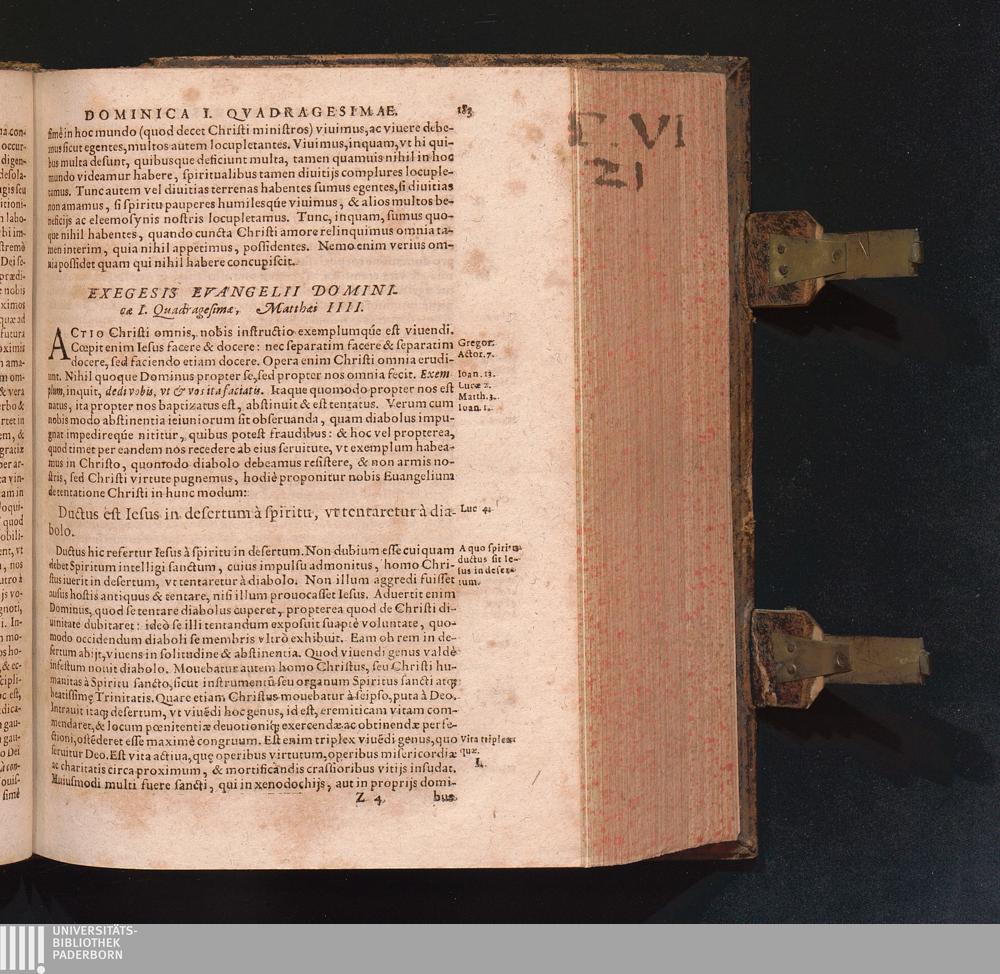 DOMINICA I. QVADRAGESIMAE. 183
simè in hoc mundo (quod decet Christi ministros) viuimus, ac viuere debe-
mus sicut egentes, multos autem locupletantes. Viuimus, inquam, vt hi qui-
bus multa desunt, quibusque deficiunt multa, tamen quamuis nihil in hoc
mundo videamur habere, spiritualibus tamen diuitijs complures locuple-
tamus. Tunc autem vel diuitias terrenas habentes sumus egentes, si diuitias
non amamus, si spiritu pauperes humilesqúe viuimus, & alios multos be-
neficijs ac eleemosynis nostris locupletamus. Tunc, inquam, sumus quo-
que nihil habentes, quando cuncta Christi amore relinquimus omnia ta-
men interim, quia nihil appetimus, possidentes. Nemo enim verius om-
nia possidet quam qui nihil habere concupiscit.
EXEGESIS EVANGELII DOMINI-
cæ I. Quadragesimæ, Matthæi IIII.
ACTIO Christi omnis, nobis instructio exemplumqúe est viuendi.
Cœpit enim Iesus facere & docere: nec separatim facere & separatim
docere, sed faciendo etiam docere. Opera enim Christi omnia erudi-
unt. Nihil quoque Dominus propter se, sed propter nos omnia fecit. Exem
plum, inquit, dedi vobis, vt & vos ita faciatis. Itaque quomodo propter nos est
natus, ita propter nos baptizatus est, abstinuit & est tentatus. Verum cum
nobis modo abstinentia ieiuniorum sit obseruanda, quam diabolus impu-
gnat impedireqúe nititur, quibus potest fraudibus: & hoc vel propterea,
quod timet per eandem nos recedere ab eius seruitute, vt exemplum habea-
mus in Christo, quomodo diabolo debeamus resistere, & non armis no-
stris, sed Christi virtute pugnemus, hodiè proponitur nobis Euangelium
de tentatione Christi in hunc modum:
Gregor.
Actor. 7.
Ioan. 13.
Lucæ 2.
Matth. 3.
Ioan. 1.
Ductus est Iesus in desertum à spiritu, vt tentaretur à dia-
bolo.
Luc 4.
Ductus hic refertur Iesus à spiritu in desertum. Non dubium esse cuiquam
debet Spiritum intelligi sanctum, cuius impulsu admonitus, homo Chri-
stus iuerit in desertum, vt tentaretur à diabolo. Non illum aggredi fuisset
ausus hostis antiquus & tentare, nisi illum prouocasset Iesus. Aduertit enim
Dominus, quod se tentare diabolus cuperet, propterea quod de Christi di-
uinitate dubitaret: ideò se illi tentandum exposuit suaptè voluntate, quo-
modo occidendum diaboli se membris vltrò exhibuit. Eam ob rem in de-
sertum abijt, viuens in solitudine & abstinentia. Quod viuendi genus valdè
infestum nouit diabolo. Mouebatur autem homo Christus, seu Christi hu-
manitas à Spiritu sancto, sicut instrumentũ seu organum Spiritus sancti atq;
beatissimę Trinitatis. Quare etiam Christus mouebatur à seipso, puta à Deo.
Intrauit itaq; desertum, vt viuẽdi hoc genus, id est, eremiticam vitam com-
mendaret, & locum pœnitentiæ deuotioniq; exercendæ ac obtinendæ perfe-
ctioni, ostẽderet esse maximè congruum. Est enim triplex viuẽdi genus, quo
seruitur Deo. Est vita actiua, quę operibus virtutum, operibus misericordiæ
ac charitatis circa proximum, & mortificandis crassioribus vitijs insudat.
Huiusmodi multi fuere sancti, qui in xenodochijs, aut in proprijs domi-
A quo spiritu
ductus sit Ie-
sus in deser-
tum.
Vita triplex
quæ.
I.
Z 4 bus
VI
21
UNIVERSITÄTS-
BIBLIOTHEK
PADERBORN